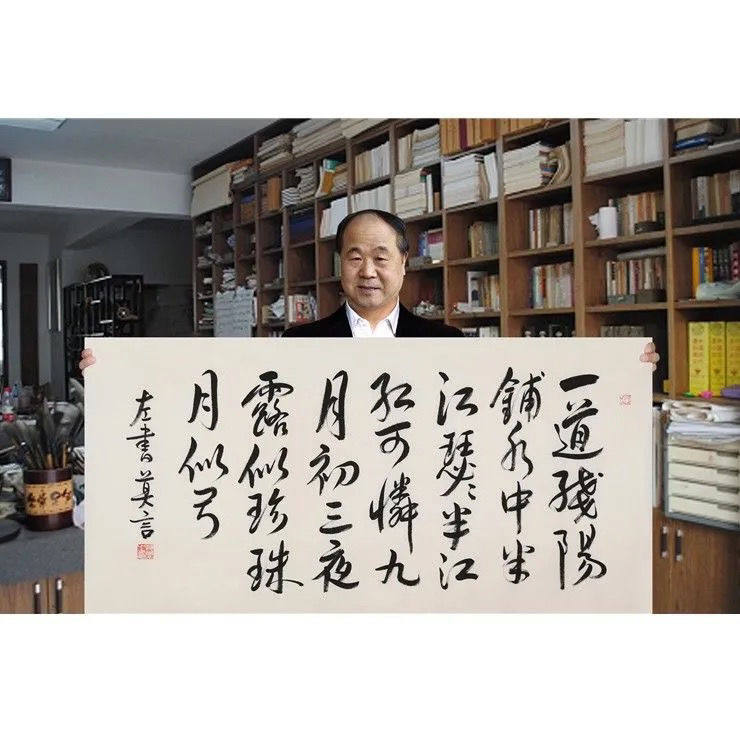 一道殘陽
鋪水中半
江瑟〻半江
紅可憐九
月初三夜
露似珍珠
月似弓
左書莫言